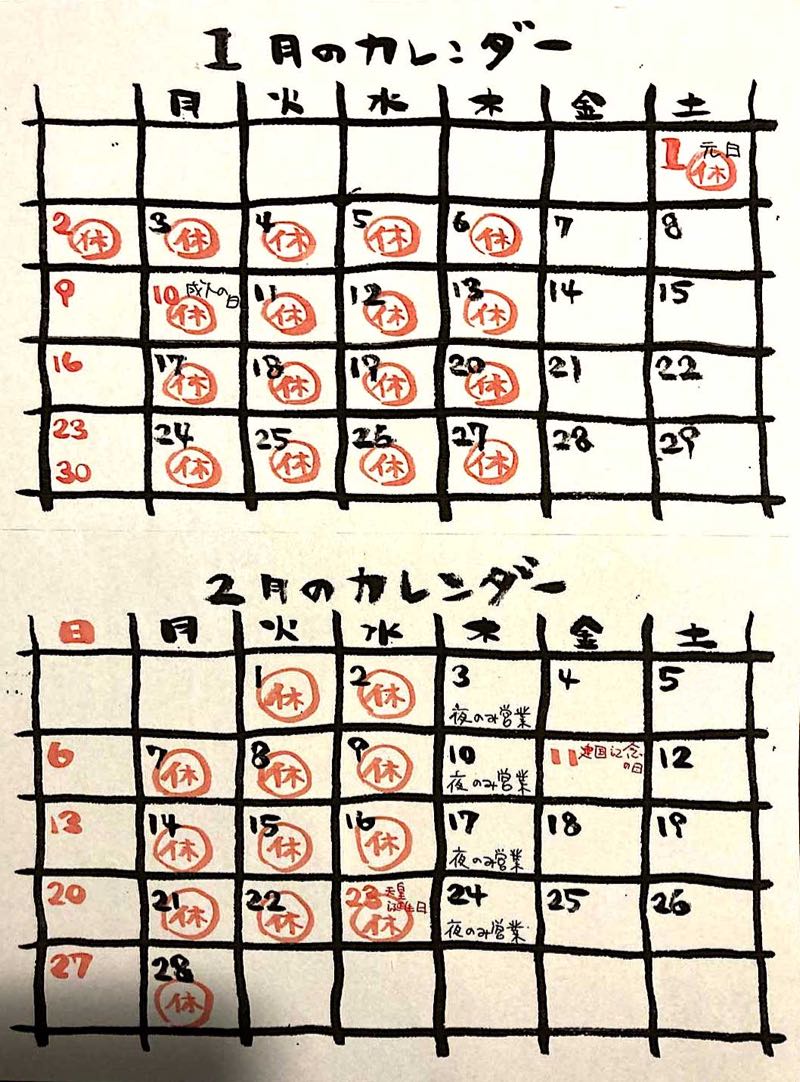 1月のカレンダー
月 火 水 木 金 土
1 元日 休
2 休 3 休 4 休 5 休 6 休 7 8
9 10 成人の日 休 11 休 12 休 13 休 14 15
16 17 休 18 休 19 休 20 休 21 22
23 24 休 25 休 26 休 27 休 28 29
30
2月のカレンダー
日 月 火 水 木 金 土
1 休 2 休 3 夜のみ営業 4 5
6 7 休 8 休 9 休 10 夜のみ営業 11 建国記念の日 12
13 14 休 15 休 16 休 17 夜のみ営業 18 19
20 21 休 22 休 23 天皇誕生日 休 24 夜のみ営業 25 26
27 28 休